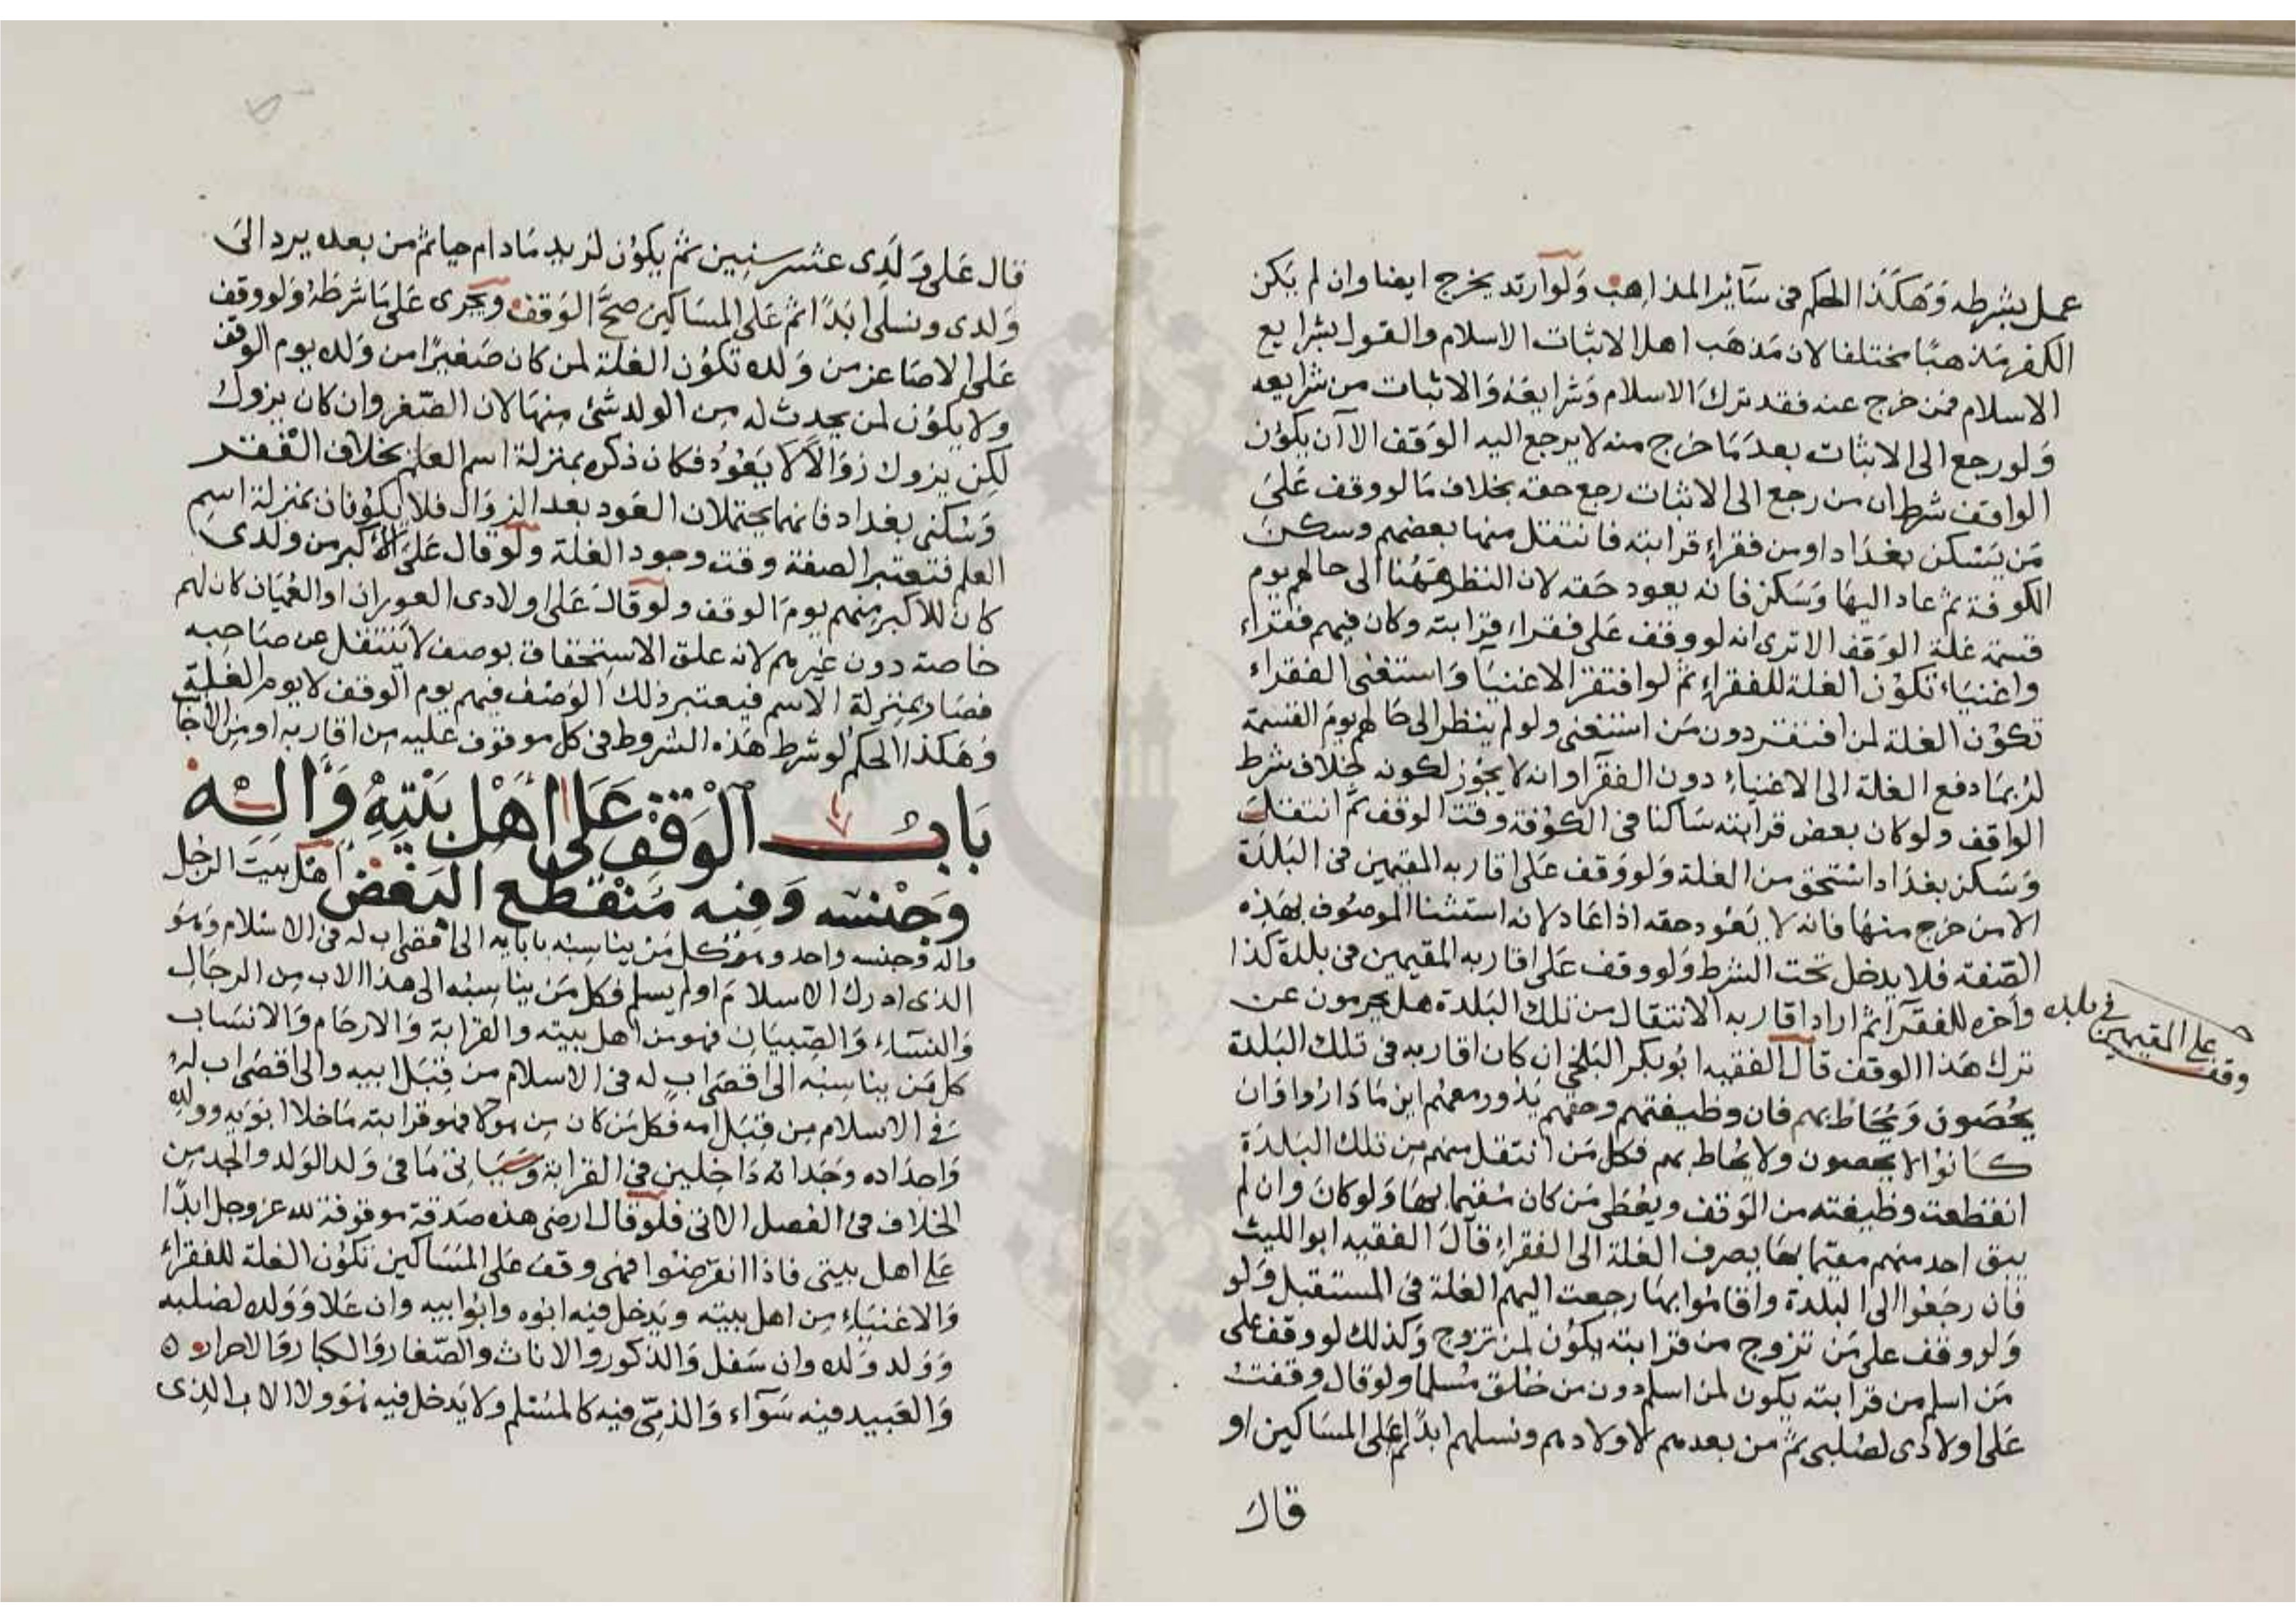 عمل بشرطه وَهكَذا الحكم فى سَآئر المذاهب وَلو ارتد يخرج ايضا وان لم يَكن
الكفر مَذهبًا مختلفا لان مَذهَب اهل الاثبات الاسلام والقول بشرايع
الاسلام فمن خرج عنه فقد ترك الاسلام وَشرايعَهُ وَالاثبات من شرايعه
وَلو رجع الى الاثبات بعدَمَا خرج منه لا يرجع اليه الوَقف الا آن يكوُن
الواقف شرط ان من رجع الى الاثبات رجع حقه بخلاف مَا لو وقف عَلىَ
مَن يَسْكن بغدَاد او من فقراءِ قرابته فانتقل منها بعضهم وسكن
الكوفة ثم عاد اليهَا وَسَكن فانه يعود حَقه لان النظر هَهُنا الى حالهم يوم
قسمة غلة الوَقف الا ترى انه لو وقف عَلى فقراءِ قرابته وكان فيهم فقراء
واغنيَاء تكوُن الغلة للفقراءِ ثم لو افتقر الاغنيَا وَاستغنى الفقراء
تكوُن الغلة لمن افتقر دون مَن استغنى ولو لم ينظر الى حَالهم يومَ القسمة
لرُبمَا دفع الغلة الى الاغنياء دون الفقرآ وانه لا يجُوز لكونه خلاف شرط
الواقف ولو كان بعض قرابته سَاكنا فى الكوُفة وقت الوقف ثم انتقل
وَسَكن بغدَاد استحق من الغلة وَلو وَقف عَلى اقاربه المقيمين فى البَلدَة
الا من خرج منهَا فانه لا يَعُود حقه اذا عَاد لانه استثنا الموصُوف بهَذِه
الصّفة فلا يدخل تحت الشرط وَلو وقف عَلى اقاربه المقيمين فى بلدة كذا
وآخره للفقرآ ثم اراد اقاربه الانتقال من تلك البَلدة هل يحرمون عن
وقف على المقيمين فى بلده
ترك هَذا الوقف قال الفقيه ابُو بكر البَلخى ان كان اقاربه فى تلك البَلدة
يحُصَون وَيُحَاط بهم فان وظيفتهم وحقهم يَدور معهُم اين مَا دَاروا وَان
كَانوُا لا يحصون ولا يحُاط بهم فكل مَن انتقل منهم من تلك البَلدَة
انقطعت وظيفته من الوَقف ويعُطى مَن كان مُقيما بهَا وَلو كانَ وان لم
يبق احد منهم مقيمًا بهَا يصرف الغلة الى الفقراءِ قال الفقيه ابو الليث
فان رجَعُوا الى البلدة وَاقامُوا بهَا رجعت اليهم الغلة فى المستقبل وَلو
وَلو وقف على مَن تزوج من قرابته يكوُن لمن تزوج وَكذلك لو وقف على
مَن اسلم من قرابته يكون لمن اسلم دون من خلق مُسلما ولو قال وقفتُ
عَلى اولادى لصُلبى ثم من بعدهم لاولادهم ونسلهم ابدًا ثم على المسَاكين او
قال
قال عَلى وَلَدِى عشر سنِين ثم يكوُن لزيد مَادام حيا ثم من بعده يرد الىَ
وَلدى ونسلى ابَدًا ثم عَلى المسَاكين صحَّ الوَقف ويَجرى عَلى مَا شرطَهُ وَلو وقف
عَلى الاصَاغر من وَلده تكوُن الغلة لمن كان صَغيرًا من وَلده يوم الوقف
ولا يكوُن لمن يحدث له من الولد شئ منهَا لان الصّغر وان كان يزول
لكِن يزول زوَالاً لا يَعُودُ فكان ذكره بمنزلة اسم العلم بخلاف الفقر
وَسُكنى بغداد فانهما يحتملان العَود بعد الزوَال فلا يكوُنان بمنزلة اسم
العلم فتعتبر الصفة وقت وجود الغلة ولو قال عَلى الاكبر من ولدى
كان للاكبر منهم يومَ الوقف ولو قالَ عَلى اولادى العوران او العُميَان كان لهم
خاصة دون غيرهم لانه علق الاسِتحقاق بوصف لا يَنتقل عن صَاحبه
فصَار بمنزلة الاسم فيعتبر ذلك الوَصف فيهم يوم الوقف لا يوم الغلة
وَهَكذا الحكم لو شرط هَذه الشروط فى كل موقوف عليه من اقاربه او من الاجَا
بَابُ الْوَقفِ عَلى اَهْل بَيْتِهْ وَالِهْ
وَجِنْسه وَفيه مُنْقطع البَعْض اهل بَيت الرجل
واله وجنسه واحد وهو كل مَن يناسبه بابايه الى اقصى اب له فى الاسلام وَهوَ
الذى ادرك الاسلامَ او لم يسلم فكل مَن يناسبه الى هذا الاب من الرجَال
وَالنسَاء وَالصِبيَان فهو من اهل بيته والقرابة وَالارحَام وَالانسَاب
كل مَن يناسبه الى اقصَى ابٍ له فى الاسلام من قِبَل ابيه والى اقصى اب لهُ
فى الاسلام من قِبَل امه فكل مَن كان من هولا فهو قرابته مَا خلا ابوَيه وولدِه
وَاجدَاده وجَداته دَاخِلين فى القرابة وَسَيَاتى مَا فى وَلد الوَلد والجد من
الخلاف فى الفصل الاتى فلو قال ارضى هذه صَدقة موقوفة لله عز وجل ابدًا
على اهل بيتى فاذا انقرضُوا فهى وقف عَلى المسَاكين تكوُن الغلة للفقراءِ
وَالاغنيَاءِ من اهل بيته ويَدخل فيه ابوُه وابوُا بيه وان عَلا وَوَلده لصلبه
وَوَلد وَلده وان سَفل وَالذكور والاناث والصّغار وَالكبار وَالاحرار ه
وَالعَبيد فيه سَوآء وَالذمِّى فيه كالمسُلم ولا يَدخل فيه هوَ ولا الاب الذى